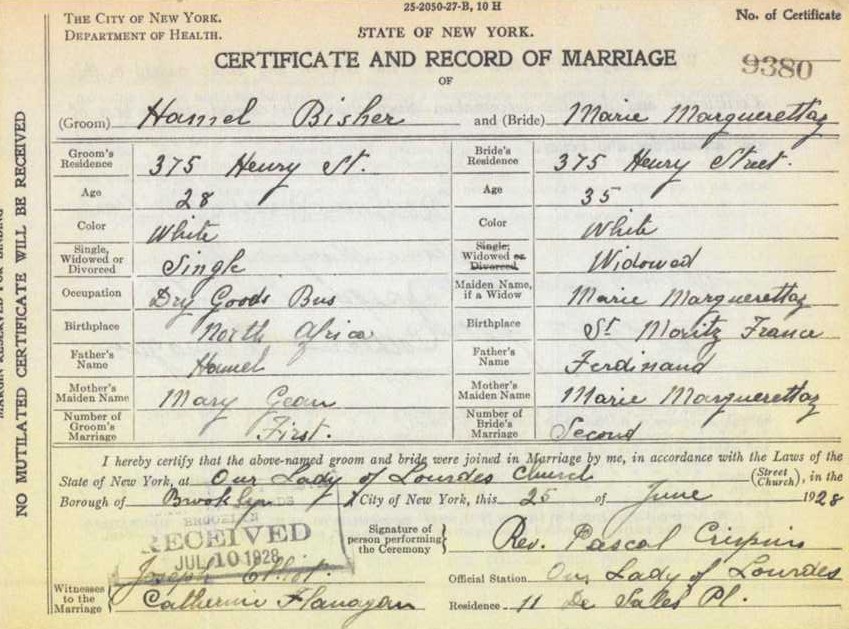 25-2050-27-B, 10 H
THE CITY OF NEW YORK.
DEPARTMENT OF HEALTH.
STATE OF NEW YORK.
No. of Certificate
CERTIFICATE AND RECORD OF MARRIAGE
9380
OF
(Groom) Hamel Bisher and (Bride) Marie Marguerettaz
Groom's Residence 375 Henry St. Bride's Residence 375 Henry Street.
Age 28 Age 35
Color White Color White
Single, Widowed or Divorced Single Single, Widowed or Divorced Widowed
Occupation Dry Goods Bus Maiden Name, if a Widow Marie Marguerettaz
Birthplace North Africa Birthplace St Moritz France
Father's Name Hamel Father's Name Ferdinand
Mother's Maiden Name Mary Gean Mother's Maiden Name Marie Marguerettaz
Number of Groom's Marriage First. Number of Bride's Marriage Second
I hereby certify that the above-named groom and bride were joined in Marriage by me, in accordance with the Laws of the
State of New York, at Our Lady of Lourdes Church (Street Church), in the
Borough of Brooklyn City of New York, this 25 of June 1928
RECEIVED
JUL 10 1928
Signature of person performing the Ceremony Rev. Pascal Crispin
Witnesses to the Marriage Joseph
Catherine Flanagan
Official Station Our Lady of Lourdes
Residence 11 De Sales Pl.
NO MUTILATED CERTIFICATE WILL BE RECEIVED
MARGIN RESERVED FOR BINDING